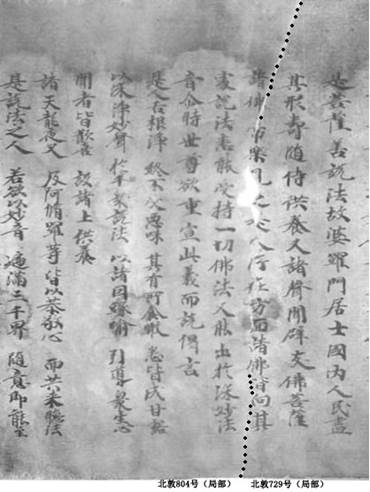 是菩薩善說法故婆羅門居士國內人民盡
其形壽隨侍供養又諸聲聞辟支佛菩薩
諸佛常樂見之是人所在方面諸佛皆向其
處說法悉能受持一切佛法又能出於深妙法
音尒時世尊欲重宣此義而說偈言
是人舌根淨 終不受惡味 其有所食噉 悉皆成甘露
以深淨妙聲 於大衆說法 以諸因緣喻 引導衆生心
聞者皆歡喜 設諸上供養
諸天龍夜叉 及阿脩羅等 皆以恭敬心 而共來聽法
是說法之人 若欲以妙音 遍滿三千界 隨意即能至
北敦804号（局部） 北敦729号（局部）